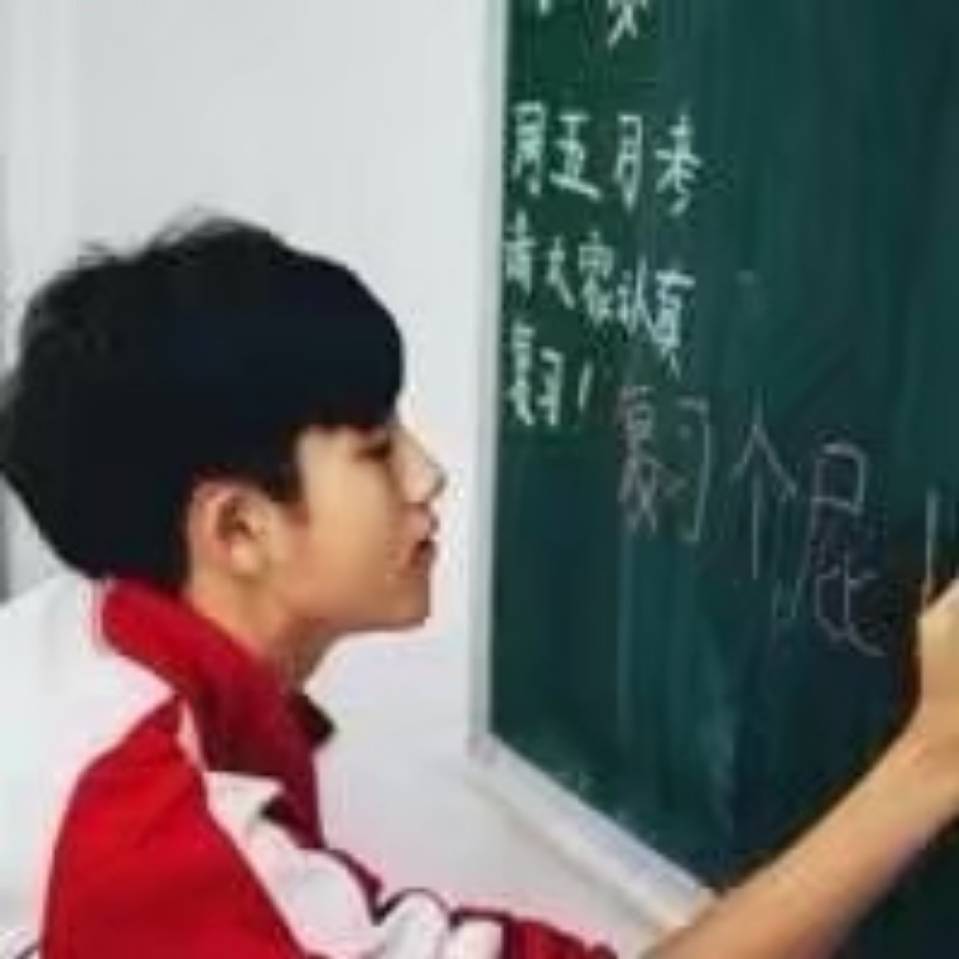 周五月考
请大家认真
复习!
复习个屁!